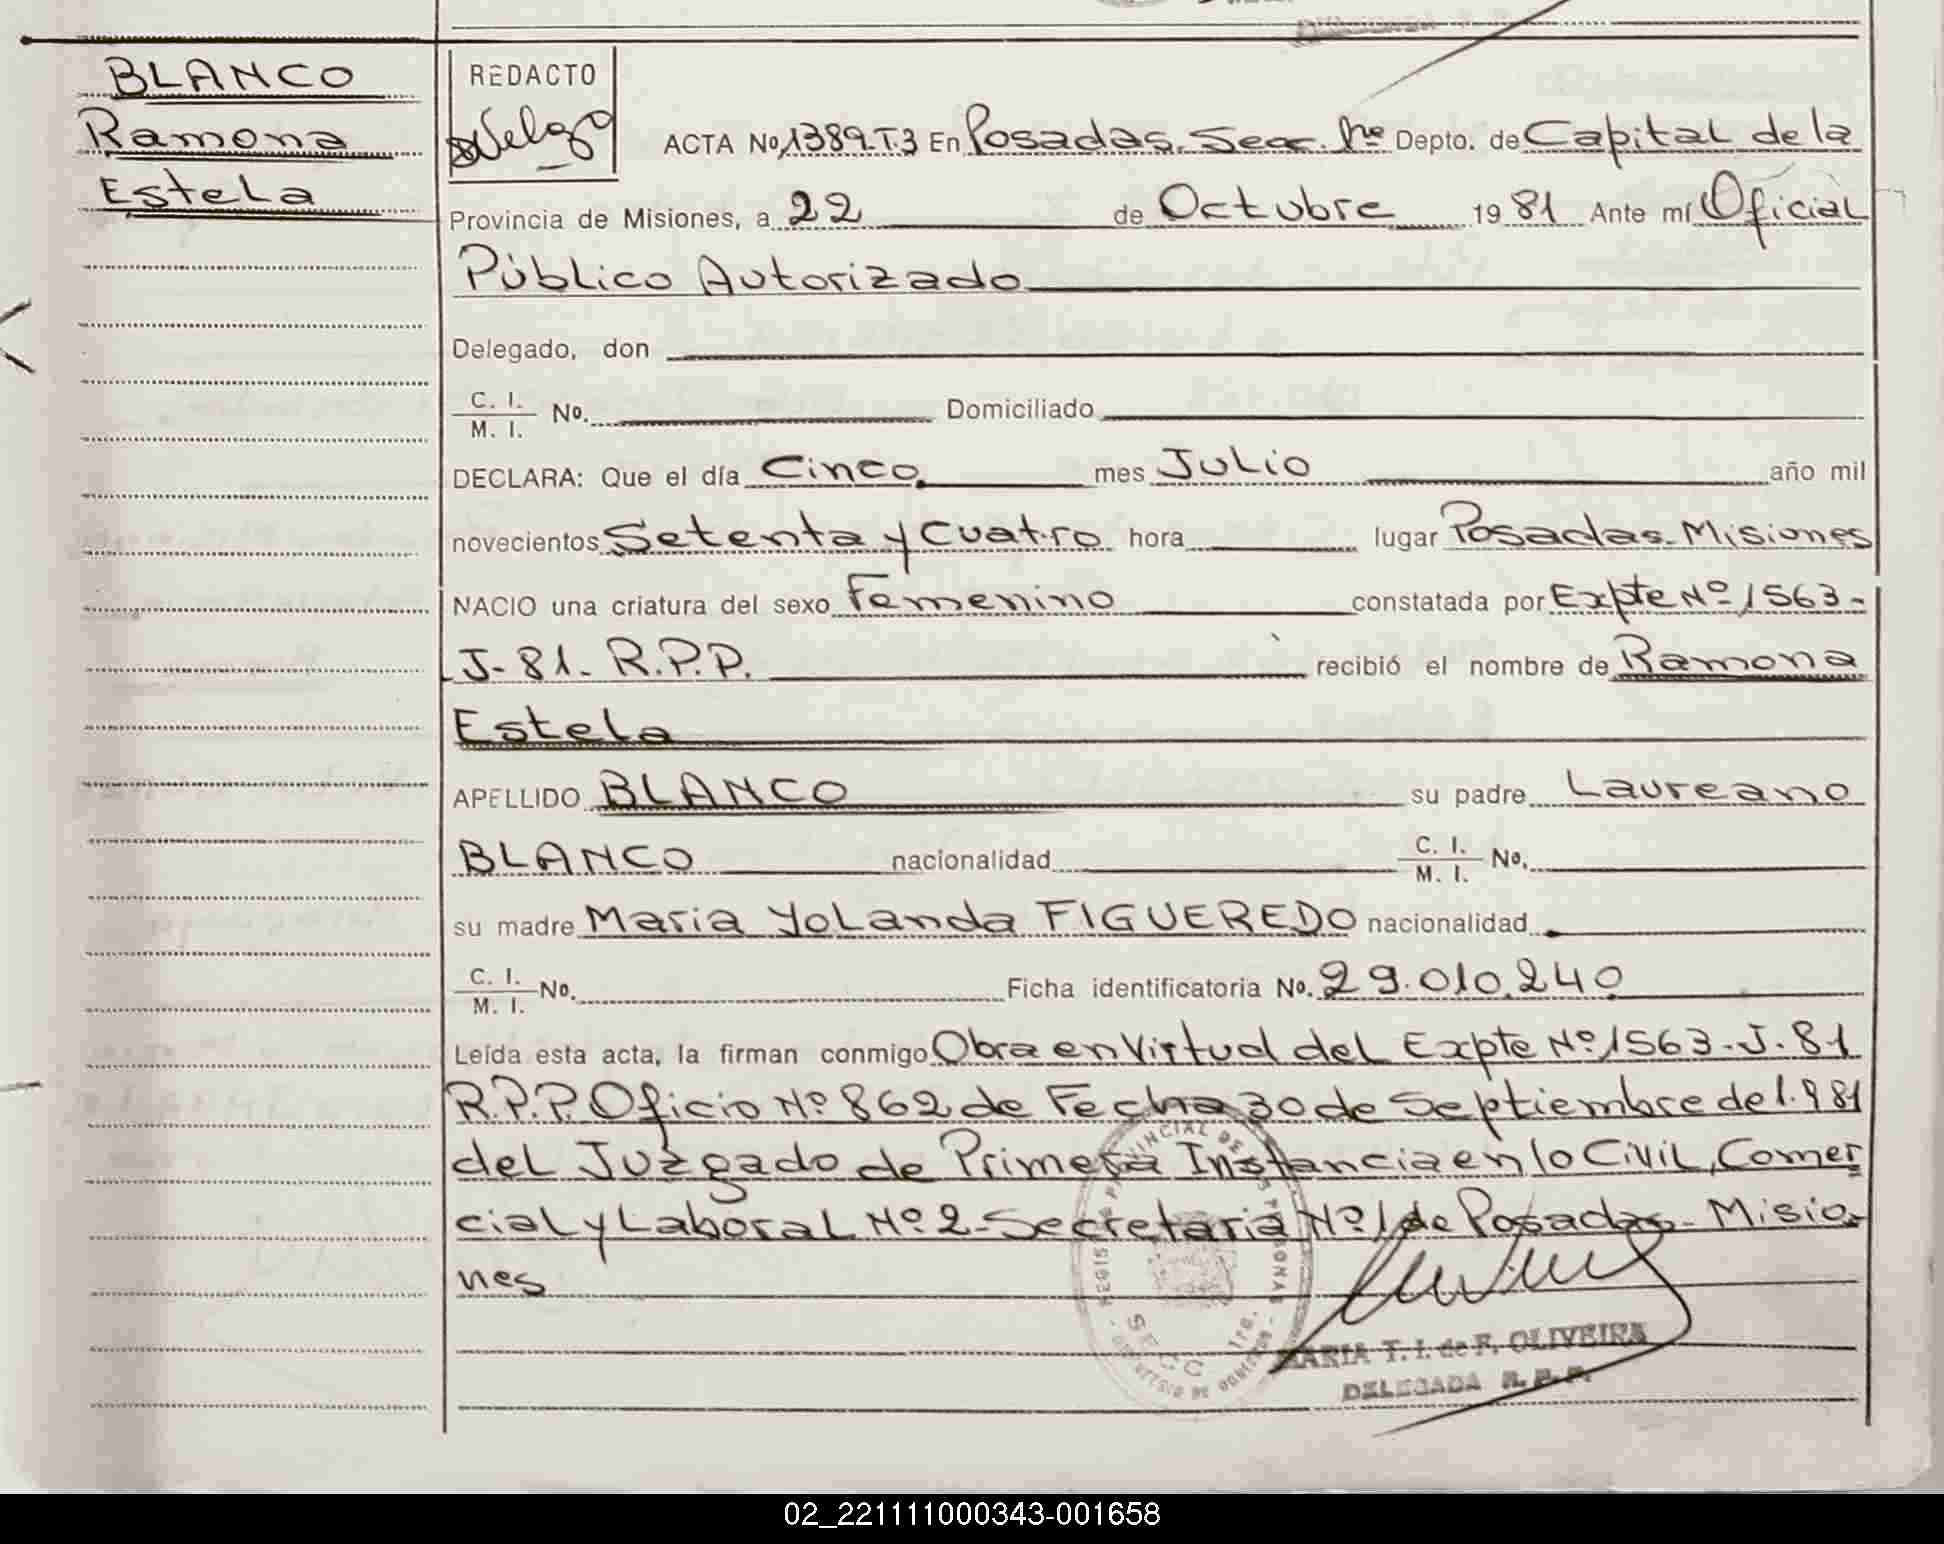 BLANCO
Ramona
Estela
REDACTO
ACTA No. 1389.T.3 En Posadas. Secc. 1ra Depto. de Capital de la
Provincia de Misiones, a 22 de Octubre 19 81 Ante mí Oficial
Público Autorizado
Delegado, don
C. I.
M. I. No. Domiciliado
DECLARA: Que el día Cinco. mes Julio año mil
novecientos Setenta y Cuatro hora lugar Posadas. Misiones
NACIO una criatura del sexo Femenino constatada por Expte Nº 1563-
J-81- R.P.P. recibió el nombre de Ramona
Estela
APELLIDO BLANCO su padre Laureano
BLANCO nacionalidad C. I.
M. I. No.
su madre Maria Yolanda FIGUEREDO nacionalidad
C. I.
M. I. No. Ficha identificatoria No. 29.010.240
Leída esta acta, la firman conmigo Obra en Virtud del Expte Nº 1563-J-81
R.P.P. Oficio Nº 862 de Fecha 30 de Septiembre de 1.981
del Juzgado de Primera Instancia en lo Civil, Comer
cial y Laboral Nº 2-Secretaria Nº 1 de Posadas- Misio-
nes
SECC 1ra.
MARIA T. I. de F. OLIVEIRA
DELEGADA R. P. P.
02_221111000343-001658